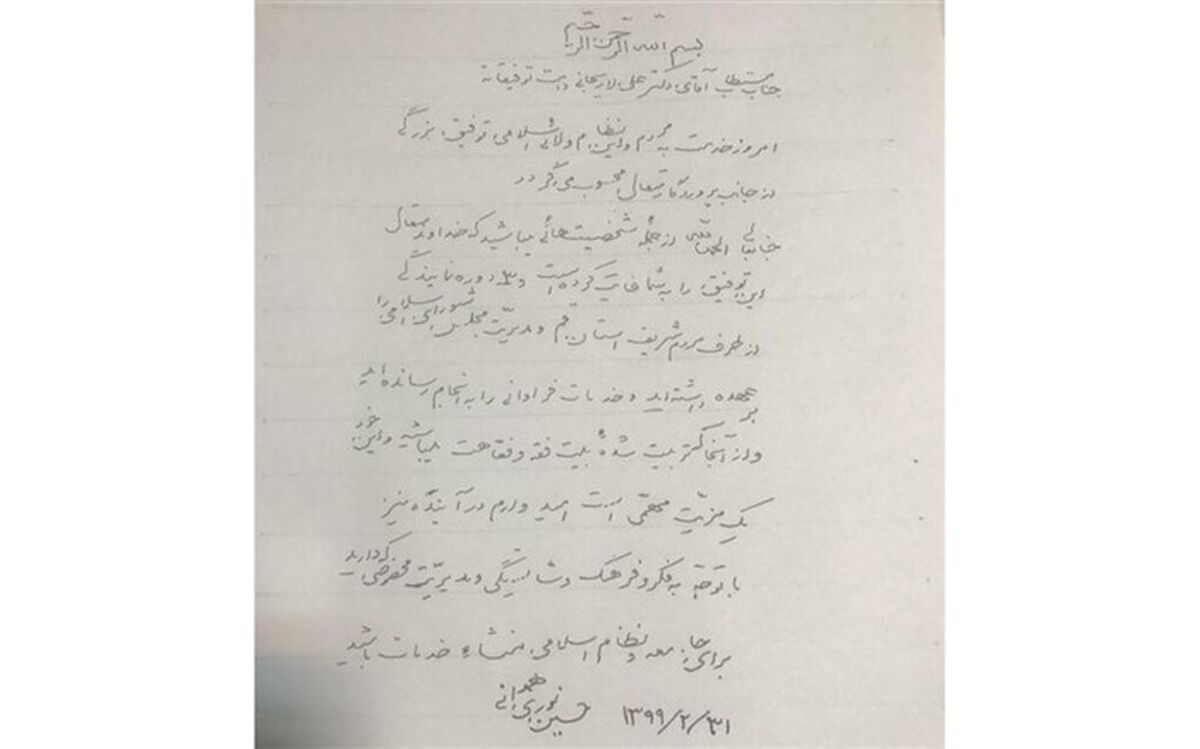 بسم الله الرحمن الرحیم
جناب مستطاب آقای دکتر علی لاریجانی دامت توفیقاته
امروز خدمت به مردم و این نظام ولائی اسلامی، توفیق بزرگی
از جانب پروردگار متعال محسوب می‌گردد
جنابعالی الحمدلله از جمله شخصیت‌هائی میباشید که خداوند متعال
این توفیق را به شما عنایت کرده است و ۳ دوره نمایندگی
از طرف مردم شریف استان قم و مدیریت مجلس شورای اسلامی را
بر عهده داشته‌اید و خدمات فراوانی را به انجام رسانده‌اید
و از آنجا که تربیت شدهٔ بیت فقه و فقاهت میباشید و این خود
یک مزیّت مهمّی است امید وارم در آینده نیز
با توجّه به فکر و فرهنگ و شایستگی و مدیریّت که دارید
برای جامعه و نظام اسلامی، منشاء خدمات باشید
۱۳۹۹/۲/۳۱ حسین نوری همدانی